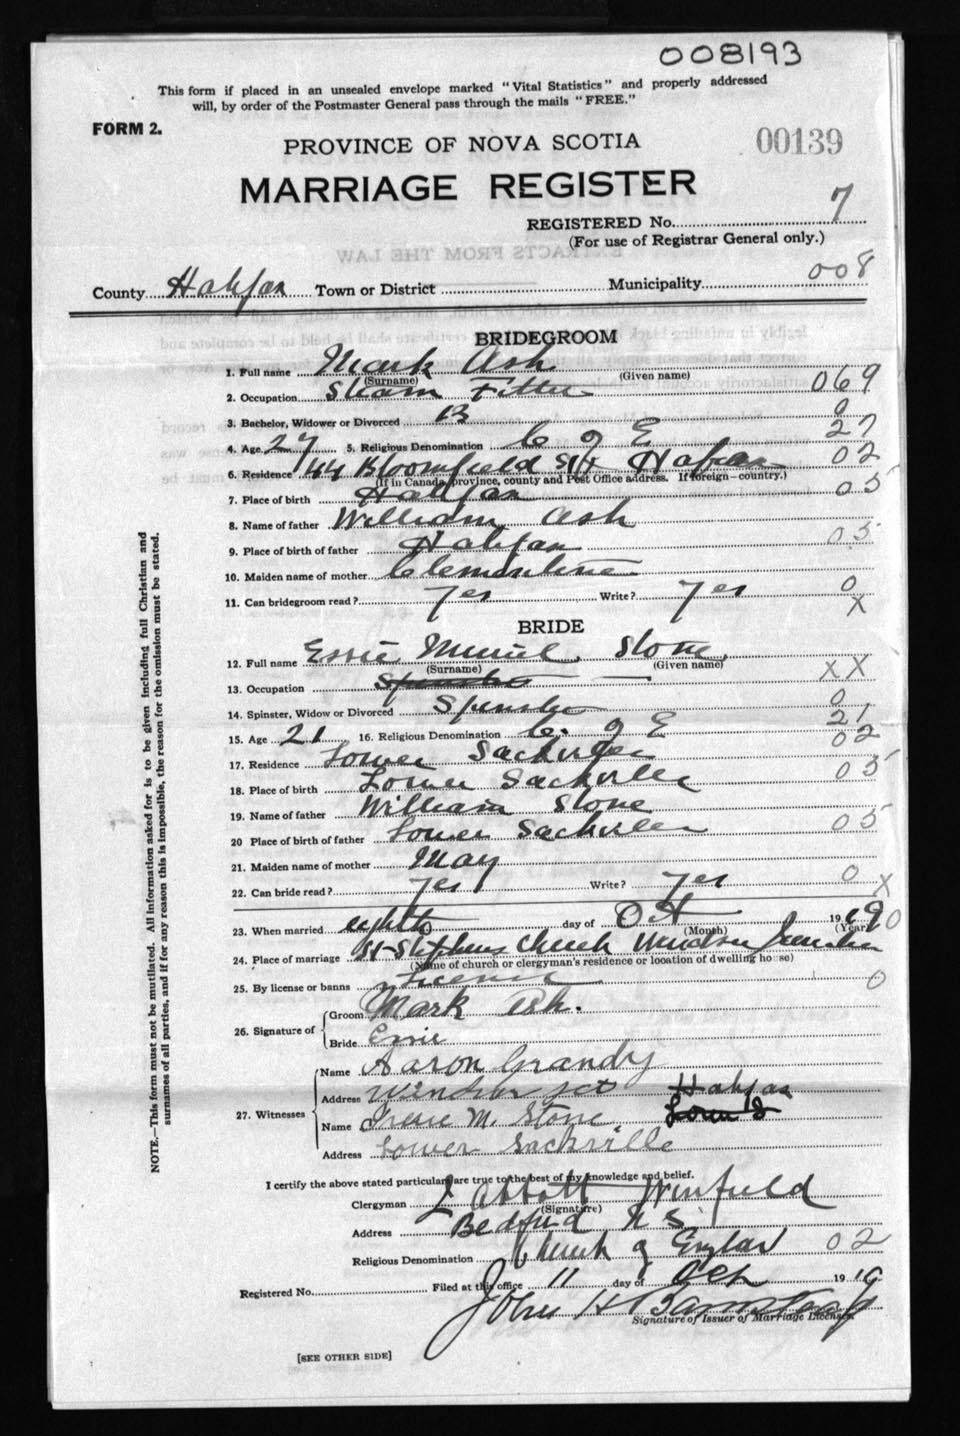 008193
This form if placed in an unsealed envelope marked "Vital Statistics" and properly addressed
will, by order of the Postmaster General pass through the mails "FREE."
FORM 2.
PROVINCE OF NOVA SCOTIA
00139
MARRIAGE REGISTER
REGISTERED No. 7
(For use of Registrar General only.)
County Halifax Town or District Municipality 008
BRIDEGROOM
1. Full name Mark Ash
(Surname) (Given name)
2. Occupation Steam Fitter 069
3. Bachelor, Widower or Divorced B 0
4. Age 27 5. Religious Denomination C of E 27
6. Residence 144 Bloomfield St Halifax 02
(If in Canada province, county and Post Office address. If foreign—country.)
7. Place of birth Halifax 05
8. Name of father William Ash
9. Place of birth of father Halifax 05
10. Maiden name of mother Clementine
11. Can bridegroom read? Yes Write? Yes 0
X
BRIDE
12. Full name Essie Muriel Stone
(Surname) (Given name)
13. Occupation Spinster — XX
14. Spinster, Widow or Divorced Spinster 0
15. Age 21 16. Religious Denomination C. of E 21
17. Residence Lower Sackville 02
18. Place of birth Lower Sackville 05
19. Name of father William Stone
20 Place of birth of father Lower Sackville 05
21. Maiden name of mother May
22. Can bride read? Yes Write? Yes 0 X
23. When married eighth day of Oct 19
(Month) (Year)
24. Place of marriage St Stephens Church Windsor Junction
(Name of church or clergyman's residence or location of dwelling house)
25. By license or banns License 0
26. Signature of
Groom Mark Ash.
Bride Essie
27. Witnesses
Name Aaron Grandy
Address Windsor Jct Halifax
Name Irene M. Stone
Address Lower Sackville
I certify the above stated particulars are true to the best of my knowledge and belief.
Clergyman L Abbott Winfield
(Signature)
Address Bedford N S
Religious Denomination Church of England 02
Registered No. Filed at this office 11 day of Oct 1919
John H Barnstead
Signature of Issuer of Marriage License.
[SEE OTHER SIDE]
NOTE.—This form must not be mutilated. All information asked for is to be given including full Christian and
surnames of all parties, and if for any reason this is impossible, the reason for the omission must be stated.